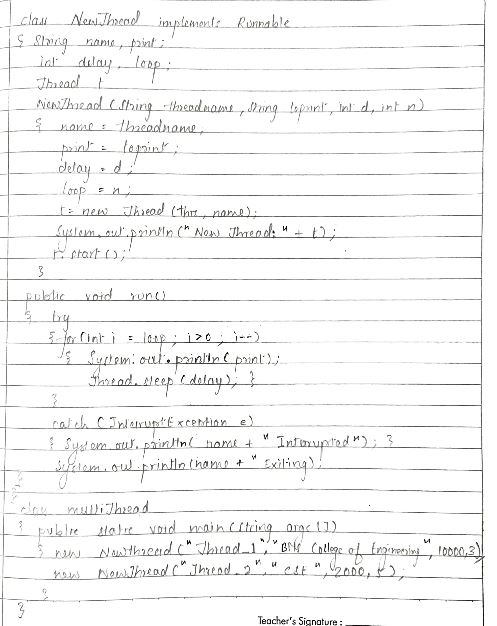 class NewThread implements Runnable
{ String name, print;
int delay, loop;
Thread t
NewThread (String threadname, String toprint, int d, int n)
{ name = threadname,
print = toprint;
delay = d;
loop = n;
t = new Thread (this, name);
System.out.println (" New Thread: " + t);
t. start ();
}
public void run()
{ try
{ for (int i = loop ; i>0 ; i--)
{ System.out.println ( print);
Thread.sleep (delay); }
}
catch (InterruptException e)
{ System.out.println( name + " Interrupted "); }
System.out.println (name + " Exiting)
}
}
class multiThread
{ public static void main (String args [])
{ new NewThread (" Thread_1 ", " College of Engineering ", 10000, 3)
new NewThread (" Thread_2 ", " CSE ", 2000, 5);
}
}
Teacher's Signature :